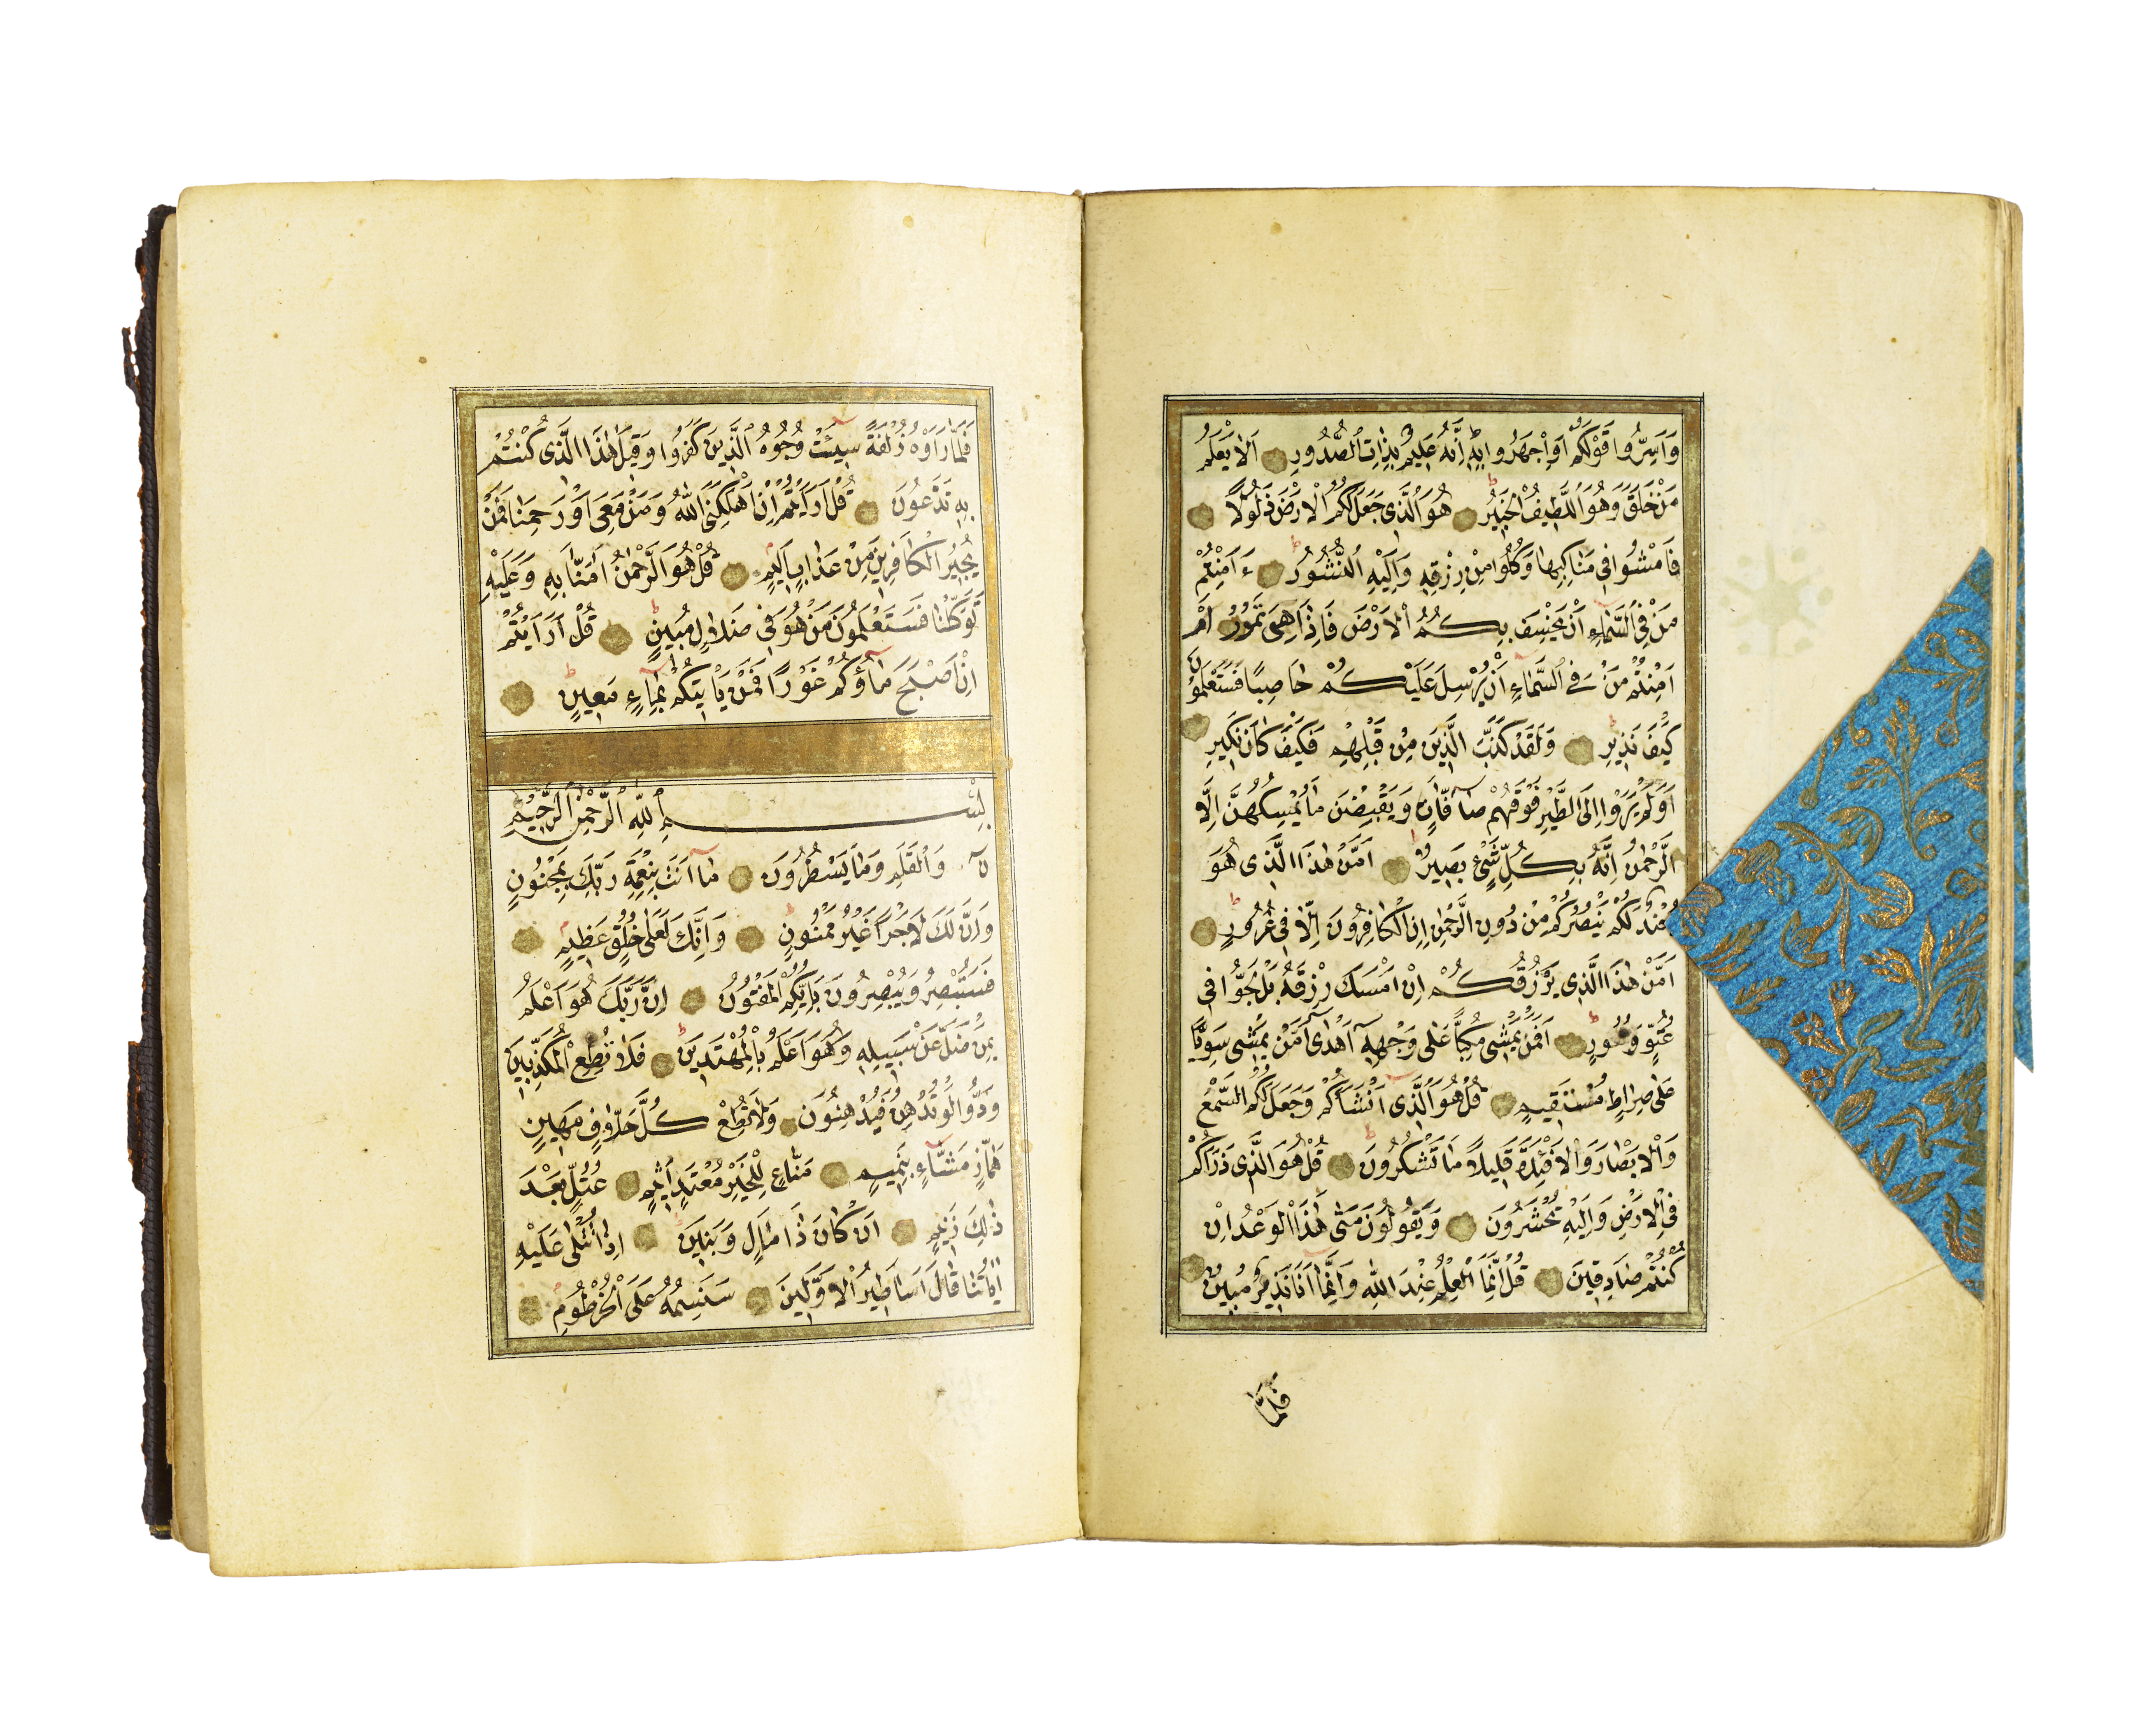 وَاَسِرُّوا قَوْلَكُمْ اَوِ اجْهَرُوا بِهِ اِنَّهُ عَلِيمٌ بِذَاتِ الصُّدُورِ اَلَا يَعْلَمُ
مَنْ خَلَقَ وَهُوَ اللَّطِيفُ الْخَبِيرُ هُوَ الَّذِى جَعَلَ لَكُمُ الْاَرْضَ ذَلُولًا
فَامْشُوا فِى مَنَاكِبِهَا وَكُلُوا مِنْ رِزْقِهِ وَاِلَيْهِ النُّشُورُ ءَاَمِنْتُمْ
مَنْ فِى السَّمَاءِ اَنْ يَخْسِفَ بِكُمُ الْاَرْضَ فَاِذَا هِىَ تَمُورُ اَمْ
اَمِنْتُمْ مَنْ فِى السَّمَاءِ اَنْ يُرْسِلَ عَلَيْكُمْ حَاصِبًا فَسَتَعْلَمُونَ
كَيْفَ نَذِيرِ وَلَقَدْ كَذَّبَ الَّذِينَ مِنْ قَبْلِهِمْ فَكَيْفَ كَانَ نَكِيرِ
اَوَلَمْ يَرَوْا اِلَى الطَّيْرِ فَوْقَهُمْ صَافَّاتٍ وَيَقْبِضْنَ مَا يُمْسِكُهُنَّ اِلَّا
الرَّحْمٰنُ اِنَّهُ بِكُلِّ شَىْءٍ بَصِيرٌ اَمَّنْ هٰذَا الَّذِى هُوَ
جُنْدٌ لَكُمْ يَنْصُرُكُمْ مِنْ دُونِ الرَّحْمٰنِ اِنِ الْكَافِرُونَ اِلَّا فِى غُرُورٍ
اَمَّنْ هٰذَا الَّذِى يَرْزُقُكُمْ اِنْ اَمْسَكَ رِزْقَهُ بَلْ لَجُّوا فِى
عُتُوٍّ وَنُفُورٍ اَفَمَنْ يَمْشِى مُكِبًّا عَلٰى وَجْهِهِ اَهْدٰى اَمَّنْ يَمْشِى سَوِيًّا
عَلٰى صِرَاطٍ مُسْتَقِيمٍ قُلْ هُوَ الَّذِى اَنْشَاَكُمْ وَجَعَلَ لَكُمُ السَّمْعَ
وَالْاَبْصَارَ وَالْاَفْئِدَةَ قَلِيلًا مَا تَشْكُرُونَ قُلْ هُوَ الَّذِى ذَرَاَكُمْ
فِى الْاَرْضِ وَاِلَيْهِ تُحْشَرُونَ وَيَقُولُونَ مَتٰى هٰذَا الْوَعْدُ اِنْ
كُنْتُمْ صَادِقِينَ قُلْ اِنَّمَا الْعِلْمُ عِنْدَ اللّٰهِ وَاِنَّمَا اَنَا نَذِيرٌ مُبِينٌ
فَلَمَّا
فَلَمَّا رَاَوْهُ زُلْفَةً سِيئَتْ وُجُوهُ الَّذِينَ كَفَرُوا وَقِيلَ هٰذَا الَّذِى كُنْتُمْ
بِهِ تَدَّعُونَ قُلْ اَرَاَيْتُمْ اِنْ اَهْلَكَنِىَ اللّٰهُ وَمَنْ مَعِىَ اَوْ رَحِمَنَا فَمَنْ
يُجِيرُ الْكَافِرِينَ مِنْ عَذَابٍ اَلِيمٍ قُلْ هُوَ الرَّحْمٰنُ اٰمَنَّا بِهِ وَعَلَيْهِ
تَوَكَّلْنَا فَسَتَعْلَمُونَ مَنْ هُوَ فِى ضَلَالٍ مُبِينٍ قُلْ اَرَاَيْتُمْ
اِنْ اَصْبَحَ مَاؤُكُمْ غَوْرًا فَمَنْ يَاْتِيكُمْ بِمَاءٍ مَعِينٍ
بِسْمِ اللّٰهِ الرَّحْمٰنِ الرَّحِيمِ
نٓ وَالْقَلَمِ وَمَا يَسْطُرُونَ مَا اَنْتَ بِنِعْمَةِ رَبِّكَ بِمَجْنُونٍ
وَاِنَّ لَكَ لَاَجْرًا غَيْرَ مَمْنُونٍ وَاِنَّكَ لَعَلٰى خُلُقٍ عَظِيمٍ
فَسَتُبْصِرُ وَيُبْصِرُونَ بِاَيِّكُمُ الْمَفْتُونُ اِنَّ رَبَّكَ هُوَ اَعْلَمُ
بِمَنْ ضَلَّ عَنْ سَبِيلِهِ وَهُوَ اَعْلَمُ بِالْمُهْتَدِينَ فَلَا تُطِعِ الْمُكَذِّبِينَ
وَدُّوا لَوْ تُدْهِنُ فَيُدْهِنُونَ وَلَا تُطِعْ كُلَّ حَلَّافٍ مَهِينٍ
هَمَّازٍ مَشَّاءٍ بِنَمِيمٍ مَنَّاعٍ لِلْخَيْرِ مُعْتَدٍ اَثِيمٍ عُتُلٍّ بَعْدَ
ذٰلِكَ زَنِيمٍ اَنْ كَانَ ذَا مَالٍ وَبَنِينَ اِذَا تُتْلٰى عَلَيْهِ
اٰيَاتُنَا قَالَ اَسَاطِيرُ الْاَوَّلِينَ سَنَسِمُهُ عَلَى الْخُرْطُومِ